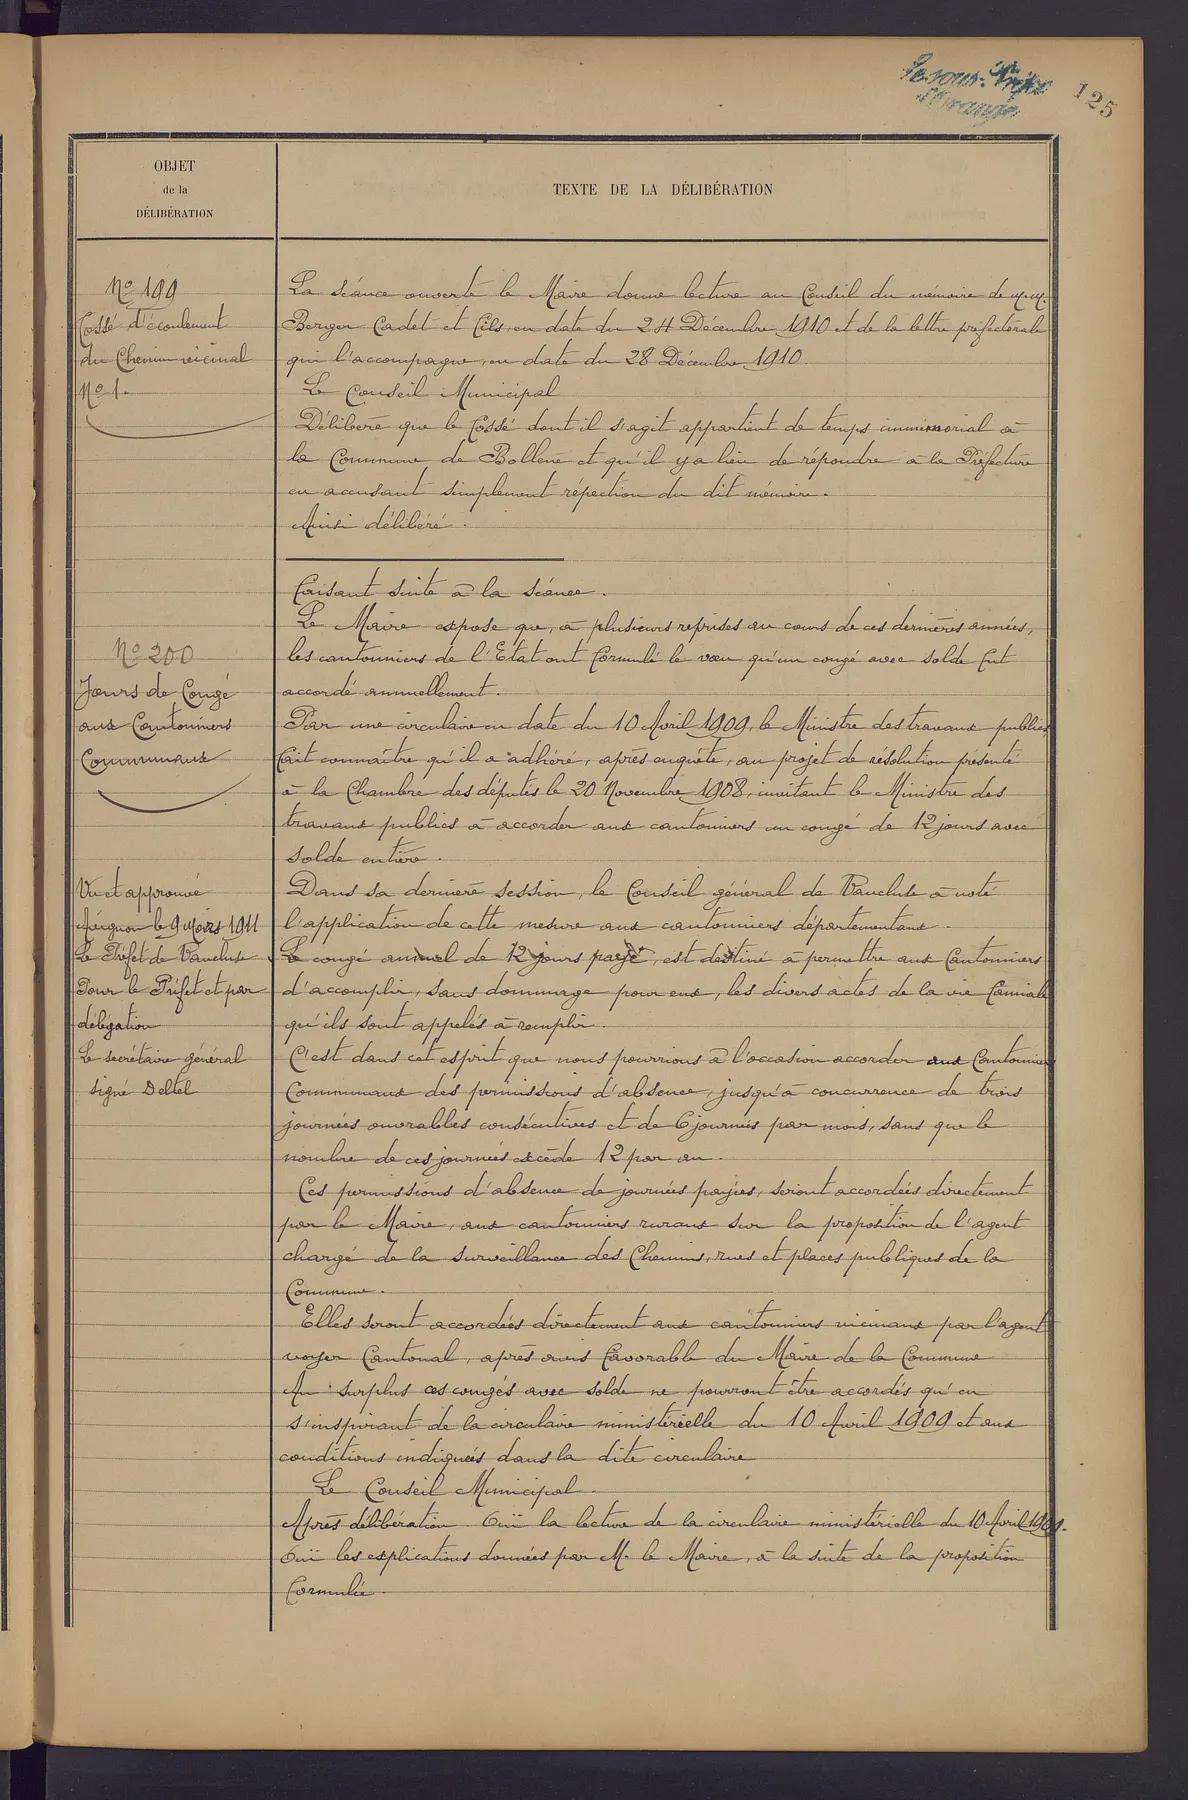 Le sous-Préfet
d'Orange
125
OBJET
de la
DÉLIBÉRATION
TEXTE DE LA DÉLIBÉRATION
No 199
Fossé d'écoulement
du Chemin vicinal
No 1.
La séance ouverte le Maire donne lecture au Conseil du mémoire de M.M.
Berger Cadet et Fils, en date du 24 Décembre 1910 et de la lettre préfectorale
qui l'accompagne, en date du 28 Décembre 1910.
Le Conseil Municipal
Délibère que le fossé dont il s'agit appartient de temps immémorial à
la Commune de Bollène et qu'il y a lieu de répondre à la Préfecture
en accusant simplement répection du dit mémoire.
Ainsi délibéré.
Faisant suite à la séance.
No 200
Jours de Congé
aux Cantonniers
Communaux
Le Maire expose que, à plusieurs reprises au cours de ces dernières années,
les cantonniers de l'Etat ont formulé le vœu qu'un congé avec solde fut
accordé annuellement.
Par une circulaire en date du 10 Avril 1909, le Ministre des travaux publics
fait connaître qu'il a adhéré, après enquête, au projet de résolution présenté
à la Chambre des députés le 20 Novembre 1908, invitant le Ministre des
travaux publics à accorder aux cantonniers un congé de 12 jours avec
solde entière.
Vu et approuvé
Avignon le 9 Mars 1911
Le Préfet de Vaucluse
Pour le Préfet et par
délégation
Le secrétaire général
signé Deltel
Dans sa dernière session, le Conseil général de Vaucluse à voté
l'application de cette mesure aux cantonniers départementaux.
Le congé annuel de 12 jours payé, est destiné à permettre aux Cantonniers
d'accomplir, sans dommage pour eux, les divers actes de la vie familiale
qu'ils sont appelés à remplir.
C'est dans cet esprit que nous pourrions à l'occasion accorder aux Cantonniers
Communaux des permissions d'absence, jusqu'à concurrence de trois
journées ouvrables consécutives et de 6 journées par mois, sans que le
nombre de ces journées excède 12 par an.
Ces permissions d'absence de journées payées, seront accordées directement
par le Maire, aux cantonniers ruraux sur la proposition de l'agent
chargé de la surveillance des Chemins, rues et places publiques de la
Commune.
Elles seront accordées directement aux cantonniers vicinaux par l'agent
voyer Cantonal, après avis favorable du Maire de la Commune
Au surplus ces congés avec solde ne pourront être accordés qu'en
s'inspirant de la circulaire ministérielle du 10 Avril 1909 et aux
conditions indiquées dans la dite circulaire
Le Conseil Municipal.
Après délibération. Ouï la lecture de la circulaire ministérielle du 10 Avril 1909.
Ouï les explications données par M. le Maire, à la suite de la proposition
formulée.